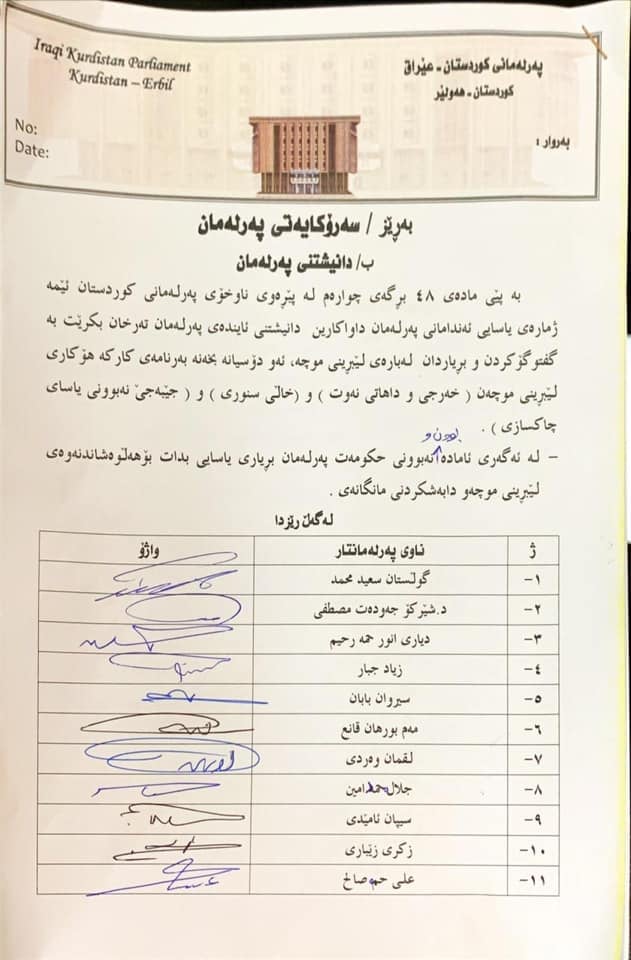 Iraqi Kurdistan Parliament
Kurdistan – Erbil
No:
Date:
پەرلەمانی کوردستان - عێراق
کوردستان - هەولێر
بەروار :
بەڕێز / سەرۆکایەتی پەرلەمان
ب/ دانیشتنی پەرلەمان
بە پێی مادەی ٤٨ بڕگەی چوارەم لە پێڕەوی ناوخۆی پەرلەمانی کوردستان ئێمە
ژمارەی یاسایی ئەندامانی پەرلەمان داواکارین دانیشتنی ئایندەی پەرلەمان تەرخان بکرێت بە
گفتوگۆکردن و بڕیاردان لەبارەی لێبڕینی موچە، ئەو دۆسیانە بخەنە بەرنامەی کارکە هۆکاری
لێبڕینی موچەن ( خەرجی و داهاتی نەوت ) و (خاڵی سنوری ) و ( جێبەجێ نەبوونی یاسای
چاکسازی ) .
بوون و
– لە ئەگەری ئامادە نەبوونی حکومەت پەرلەمان بڕیاری یاسایی بدات بۆهەڵوەشاندنەوەی
لێبڕینی موچەو دابەشکردنی مانگانەی .
لەگەڵ ڕێزدا
ژ ناوی پەرلەمانتار واژۆ
١- گوڵستان سعید محمد
٢- د.شێرکۆ جەودەت مصطفی
٣- دیاری انور حمە رحیم
٤- زیاد جبار
٥- سیروان بابان
٦- مەم بورهان قانع
٧- لقمان وەردی
٨- جلال حمە امین
٩- سیپان ئامێدی
١٠- زکری زێباری
١١- علی حمە صالح